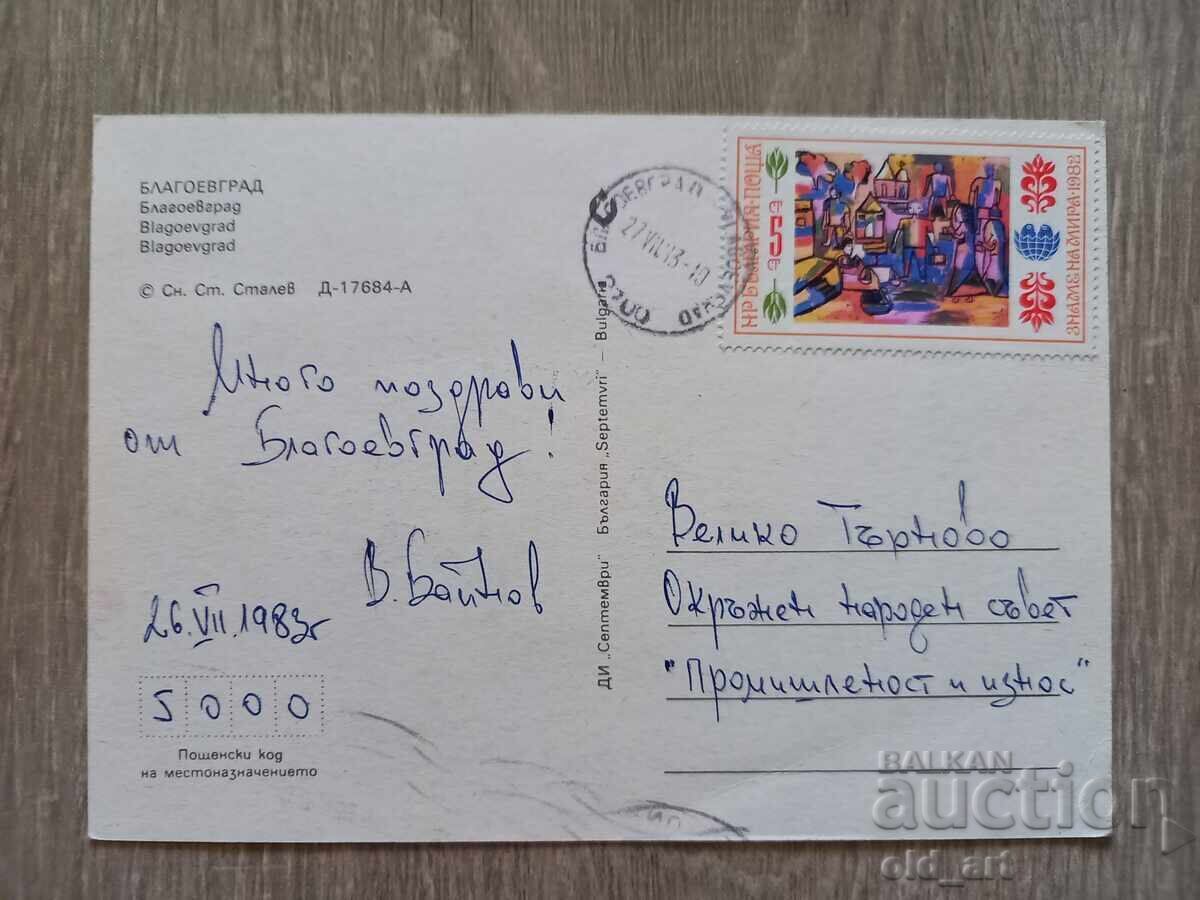 БЛАГОЕВГРАД
Благоевград
Blagoevgrad
Blagoevgrad
© Сн. Ст. Сталев Д-17684-А
Много поздрави
от Благоевград!
В. Байнов
26.VII.1983г
5000
Пощенски код
на местоназначението
ДИ „Септември" България „Septemvri" — Bulgaria
27 VII
НР БЪЛГАРИЯ·ПОЩА
5 СТ
ЗНАМЕ НА МИРА·1982
Велико Търново
Окръжен народен съвет
"Промишленост и износ"
BALKAN
auction
old_art